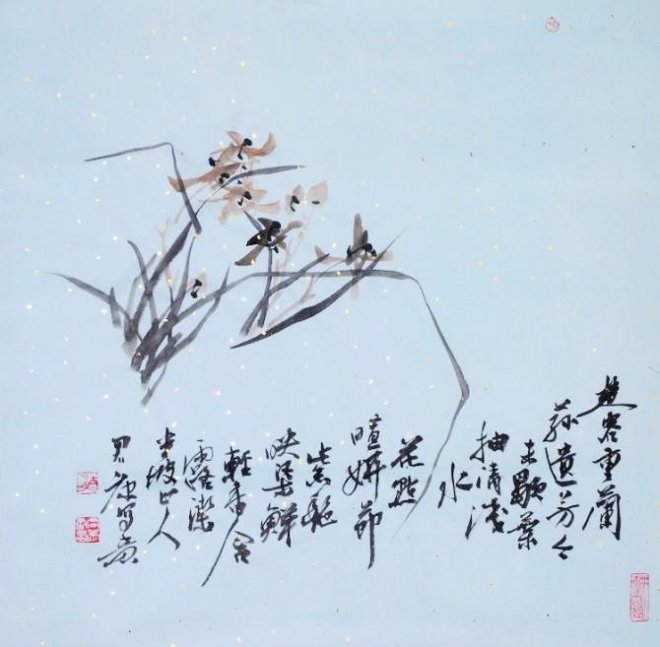 楚客重蘭
蓀遺芳今
未歇葉
抽清淺
水
花點
暄妍節
紫艷
映渠鮮
輕香含
露潔
山人